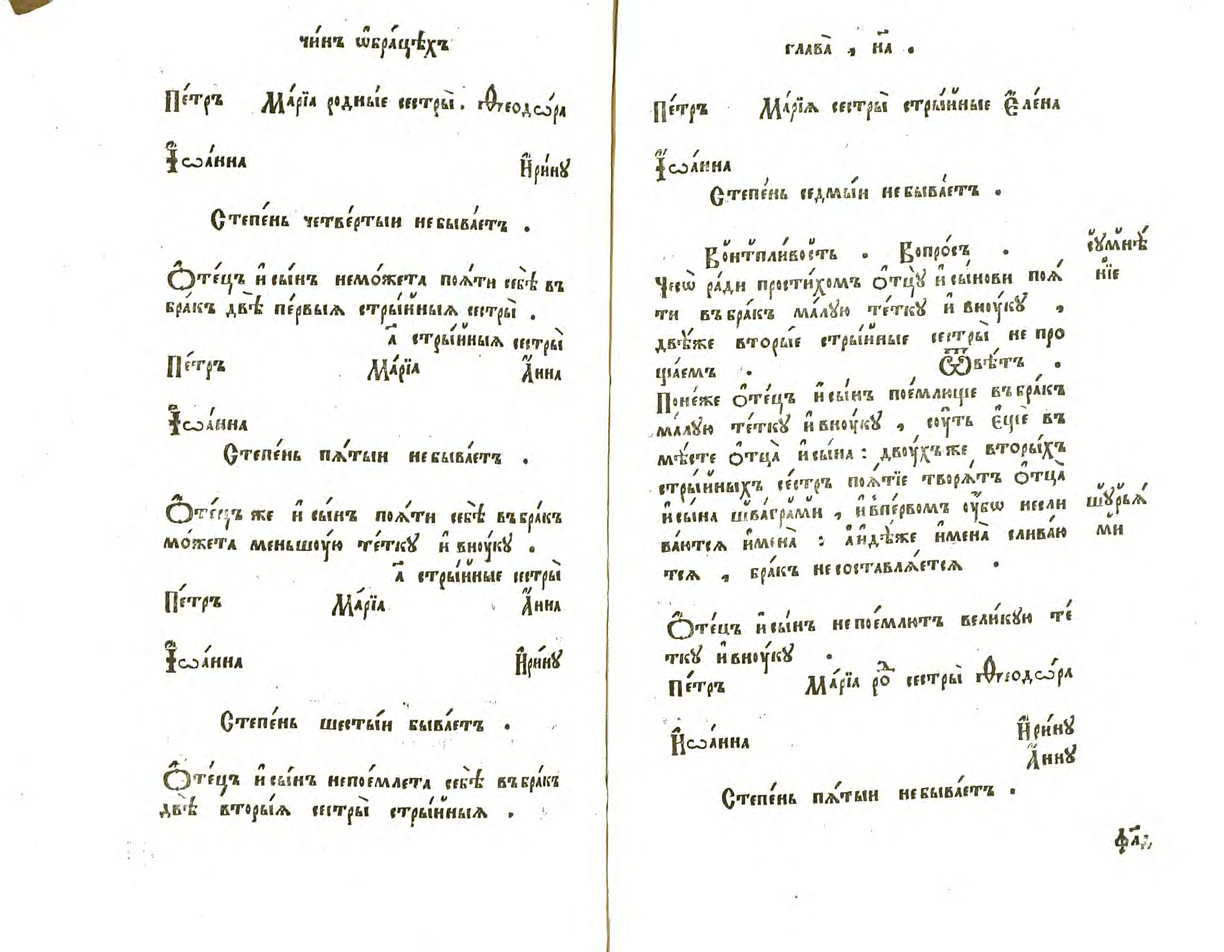 чи́нъ ѡ҆бра́цѣхъ
Пе́тръ Ма́рїа родны́е сестры̀. Ѳео́дѡ́ра
І҆ѡа́нна И҆ри́ну
Степе́нь четве́ртыи небыва́етъ .
Ѻ҆те́цъ и҆сы́нъ немо́жета поѧ́ти себѣ̀ въ
бра́къ двѣ̀ пе́рвыѧ стры́йныѧ сестры̀ .
а҃ стры́йныѧ сестры̀
Пе́тръ Ма́рїа А҆́нна
І҆ѡа́нна
Степе́нь пѧ́тыи небыва́етъ .
Ѻ҆те́цъже и҆ сы́нъ поѧ́ти себѣ̀ въбра́къ
мо́жета меньшо́ую те́тку и҆ вноу́ку .
а҃ стры́йные сестры̀
Пе́тръ Ма́рїа А҆́нна
І҆ѡа́нна И҆ри́ну
Степе́нь шесты́и быва́етъ .
Ѻ҆те́цъ и҆сы́нъ непое́млета себѣ̀ въбра́къ
двѣ̀ вторы́ѧ сестры̀ стры́йныѧ .
глава̀ , н҃а .
Пе́тръ Ма́рїѧ сестры̀ стры́йные Е҆ле́на
І҆ѡа́нна
Степе́нь седмы́и небыва́етъ .
Вонтпли́вость . Вопро́съ .
сумнѣ́
нїе
Чесѡ̀ ра́ди прости́хомъ ѻ҆тцу̀ и҆сы́нови поѧ́
ти въбра́къ ма́лую те́тку и҆ вноу́ку ,
двѣ́же вторы́е стры́йные сестры̀ не про
ща́емъ . Ѿвѣ́тъ .
Поне́же ѻ҆те́цъ и҆сы́нъ пое́млюще въбра́къ
ма́лую те́тку и҆вноу́ку , соу́ть е҆щѐ въ
мѣ́сте ѻ҆тца̀ и҆сы́на : двоу́хъже вторы́хъ
стры́йныхъ се́стръ поѧ́тїе творѧ́тъ ѻ҆тца̀
и҆сы́на шва́грами , и҆впе́рвомъ оу҆́бѡ несли
шурьѧ́
ва́ютсѧ и҆мена̀ : а҆идѣ́же и҆мена̀ слива́ю
ми
тсѧ , бра́къ несоставлѧ́етсѧ .
Ѻ҆те́цъ и҆сы́нъ непое́млютъ вели́кую те́
тку и҆вноу́ку .
Пе́тръ Ма́рїа роⷣ сестры̀ Ѳео́дѡ́ра
И҆ѡа́нна И҆ри́ну
А҆́нну
Степе́нь пѧ́тыи небыва́етъ .